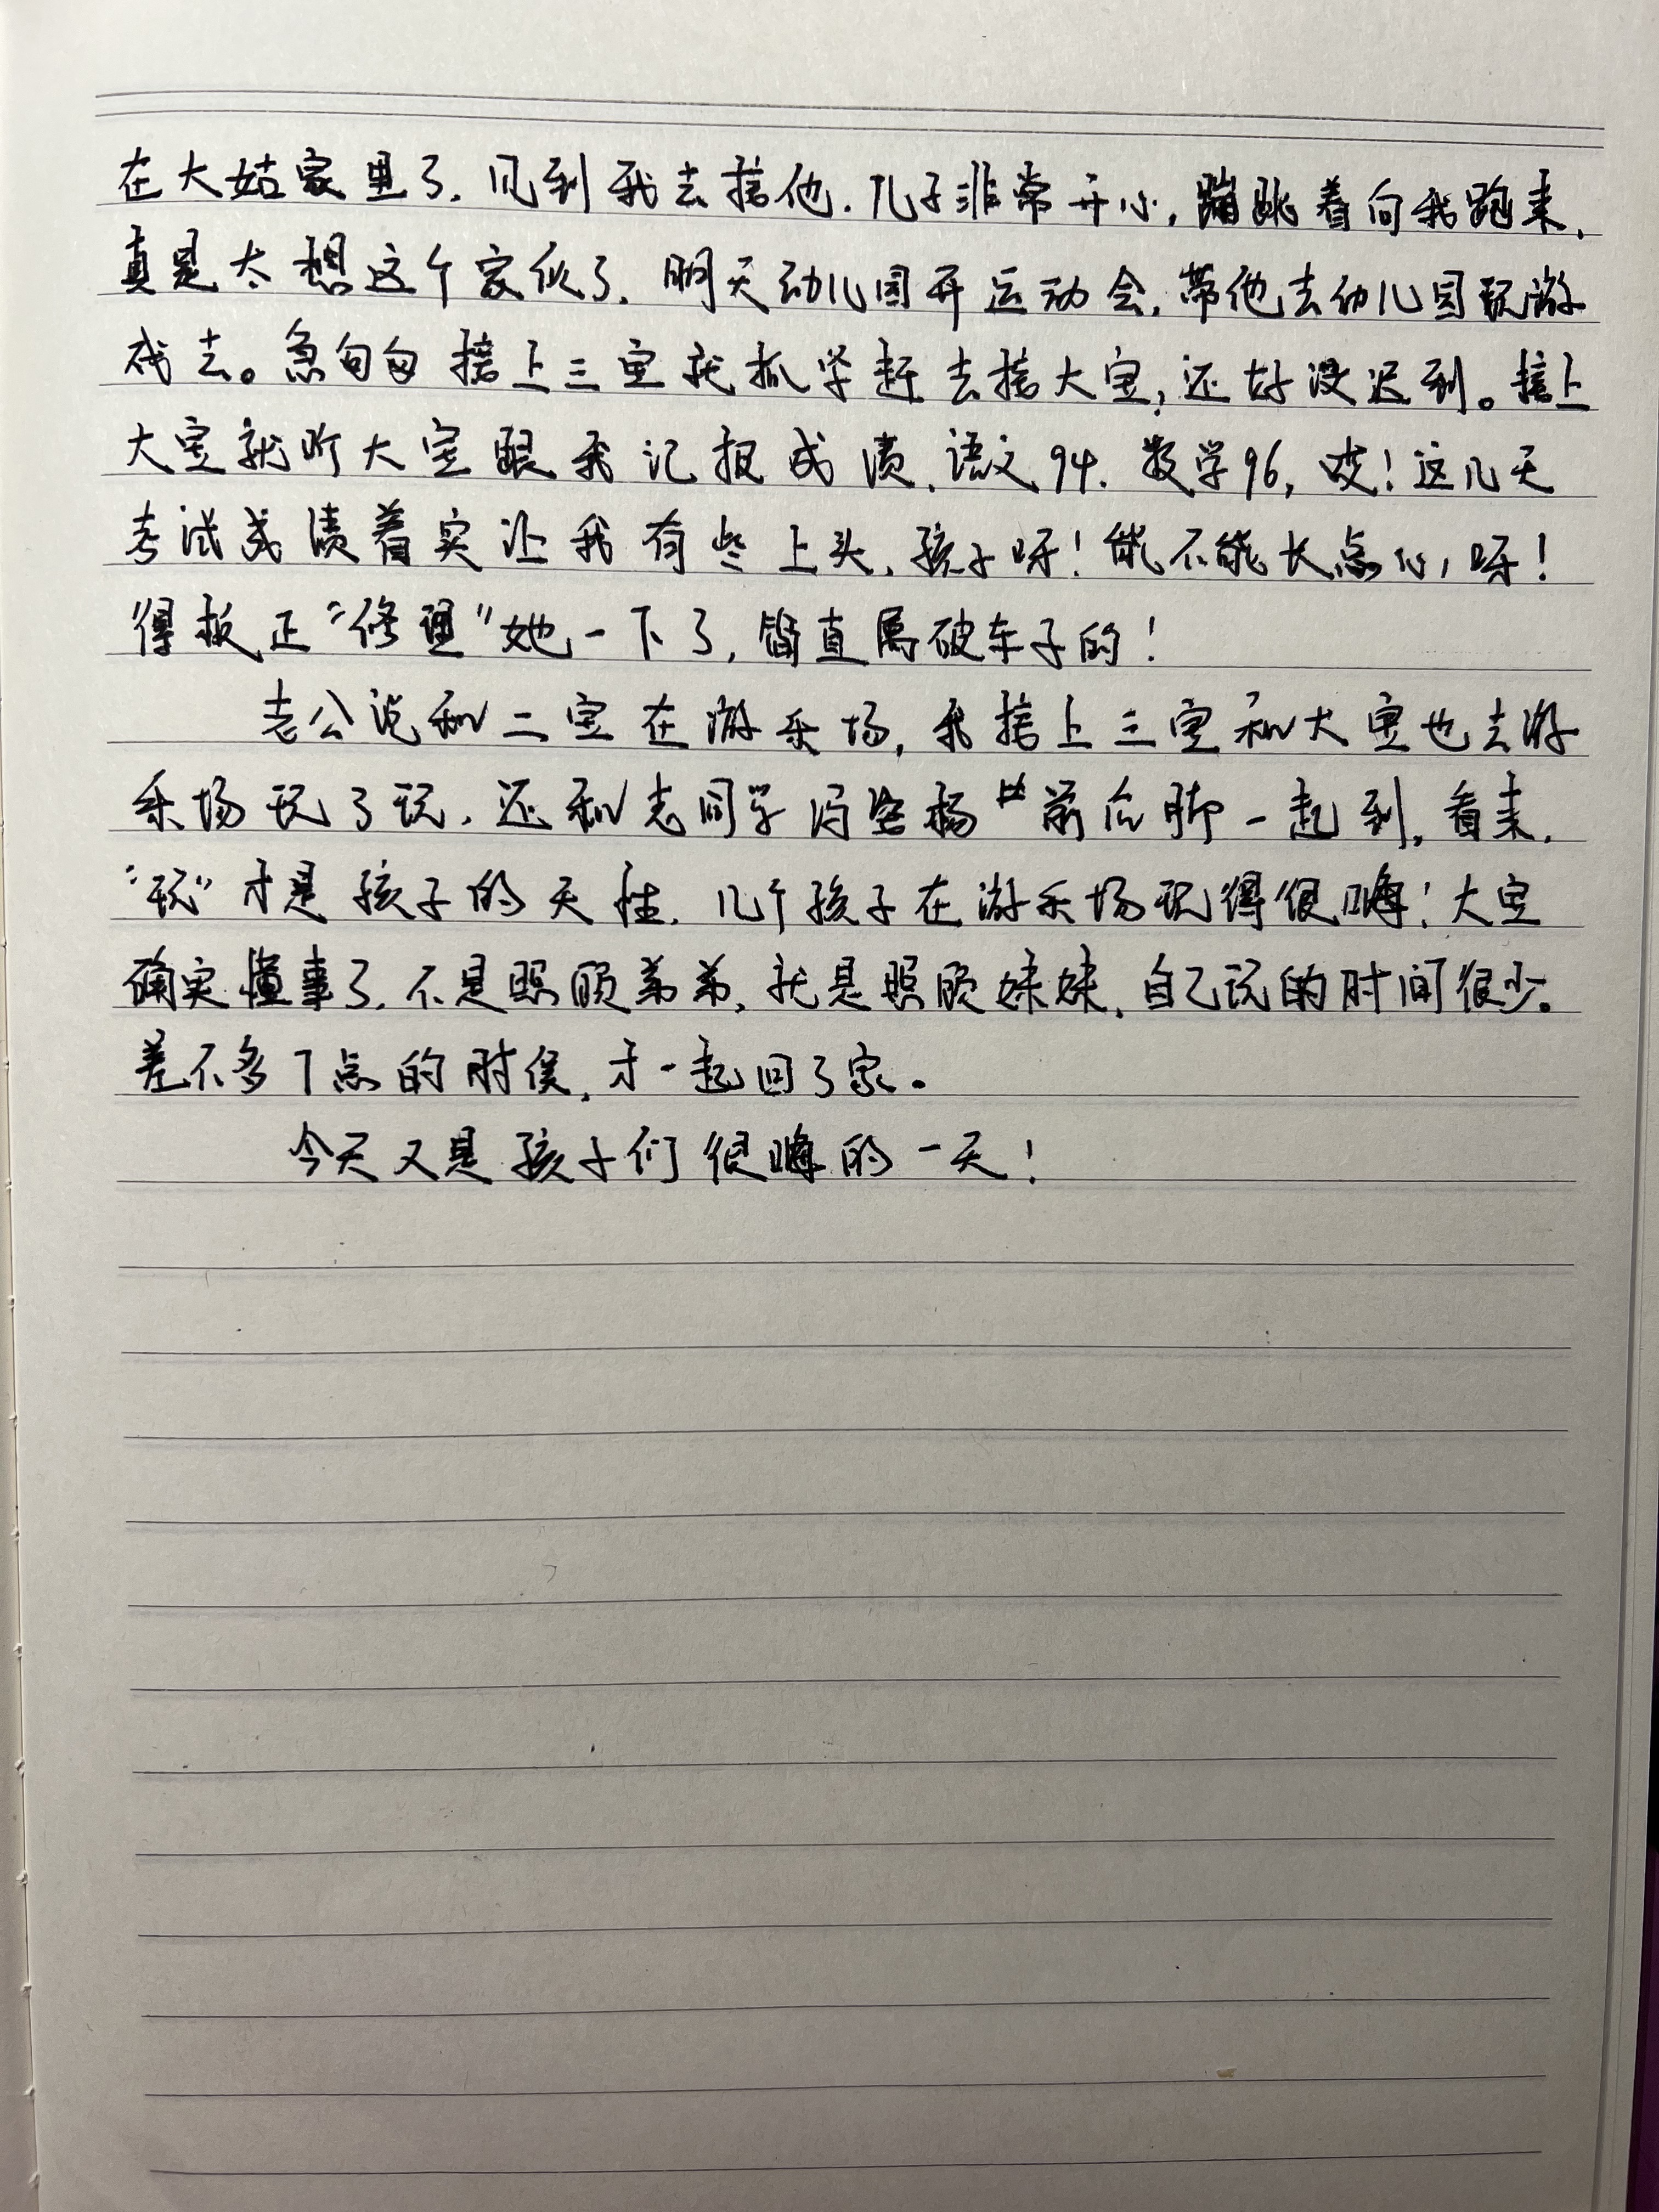 在大姑家里了，见到我去接他，儿子非常开心，蹦跳着向我跑来，
真是太想这个家伙了，明天幼儿园开运动会，带他去幼儿园玩游
戏去。急匆匆接上三宝就抓紧赶去接大宝，还好没迟到。接上
大宝就听大宝跟我汇报成绩，语文94，数学96，哎！这几天
考试成绩着实让我有些上头，孩子呀！能不能长点心呀！
得板正“修理”她一下了，简直属破车子的！
老公说和二宝在游乐场，我接上三宝和大宝也去游
乐场玩了玩，还和老同学 前后脚一起到，看来，
“玩”才是孩子的天性，几个孩子在游乐场玩得很嗨！大宝
确实懂事了，不是照顾弟弟，就是照顾妹妹，自己玩的时间很少。
差不多7点的时候，才一起回了家。
今天又是孩子们很嗨的一天！